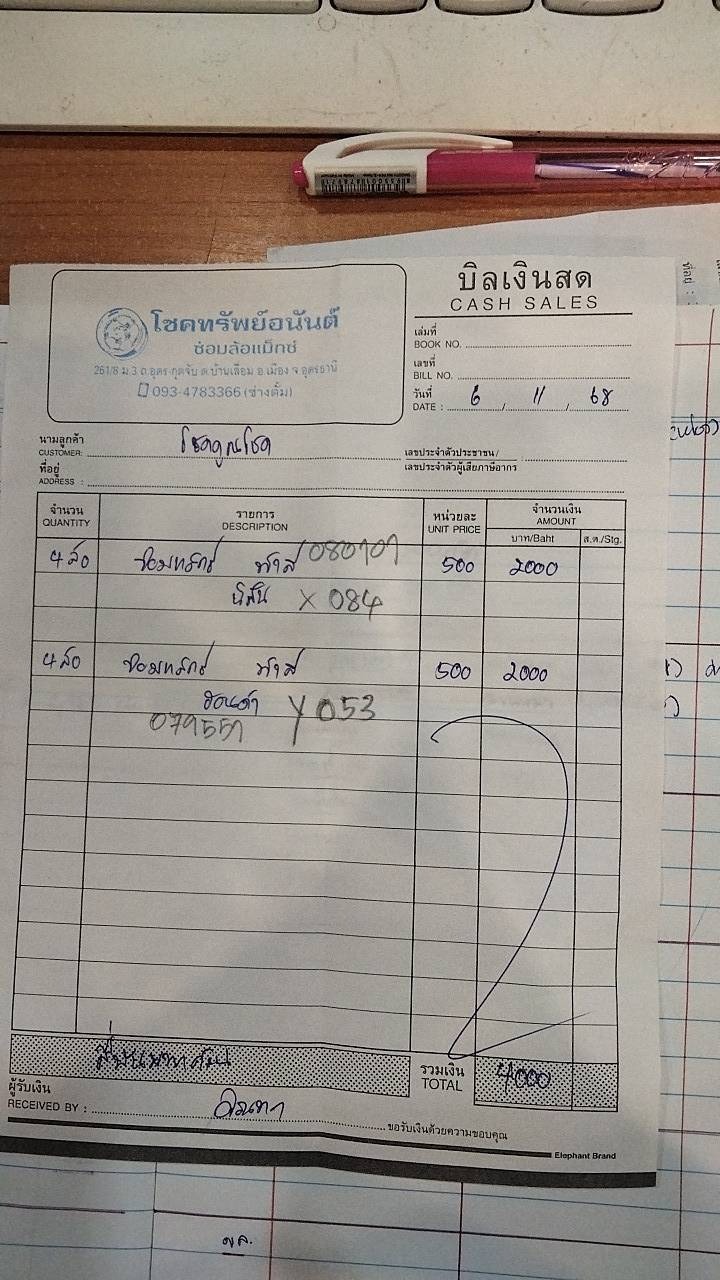 บิลเงินสด
CASH SALES
โชคทรัพย์อนันต์
ซ่อมล้อแม็กซ์
261/8 ม.3 ถ.อุดร-กุดจับ ต.บ้านเลื่อม อ.เมือง จ.อุดรธานี
093-4783366 (ช่างตั้ม)
เล่มที่
BOOK NO.
เลขที่
BILL NO.
วันที่
DATE : 6 / 11 / 68
นามลูกค้า
CUSTOMER: โชคคูณโชค
ที่อยู่
ADDRESS :
เลขประจำตัวประชาชน/ :
เลขประจำตัวผู้เสียภาษีอากร
จำนวน รายการ หน่วยละ จำนวนเงิน
QUANTITY DESCRIPTION UNIT PRICE AMOUNT
บาท/Baht ส.ต./Stg.
4 ล้อ ซ่อมแมกซ์ 080707 500 2000
X 084
4 ล้อ ซ่อมแมกซ์ 500 2000
Y 053
079557
สี่พันบาทถ้วน
รวมเงิน
TOTAL 4000
ผู้รับเงิน
RECEIVED BY :
ขอรับเงินด้วยความขอบคุณ
Elephant Brand